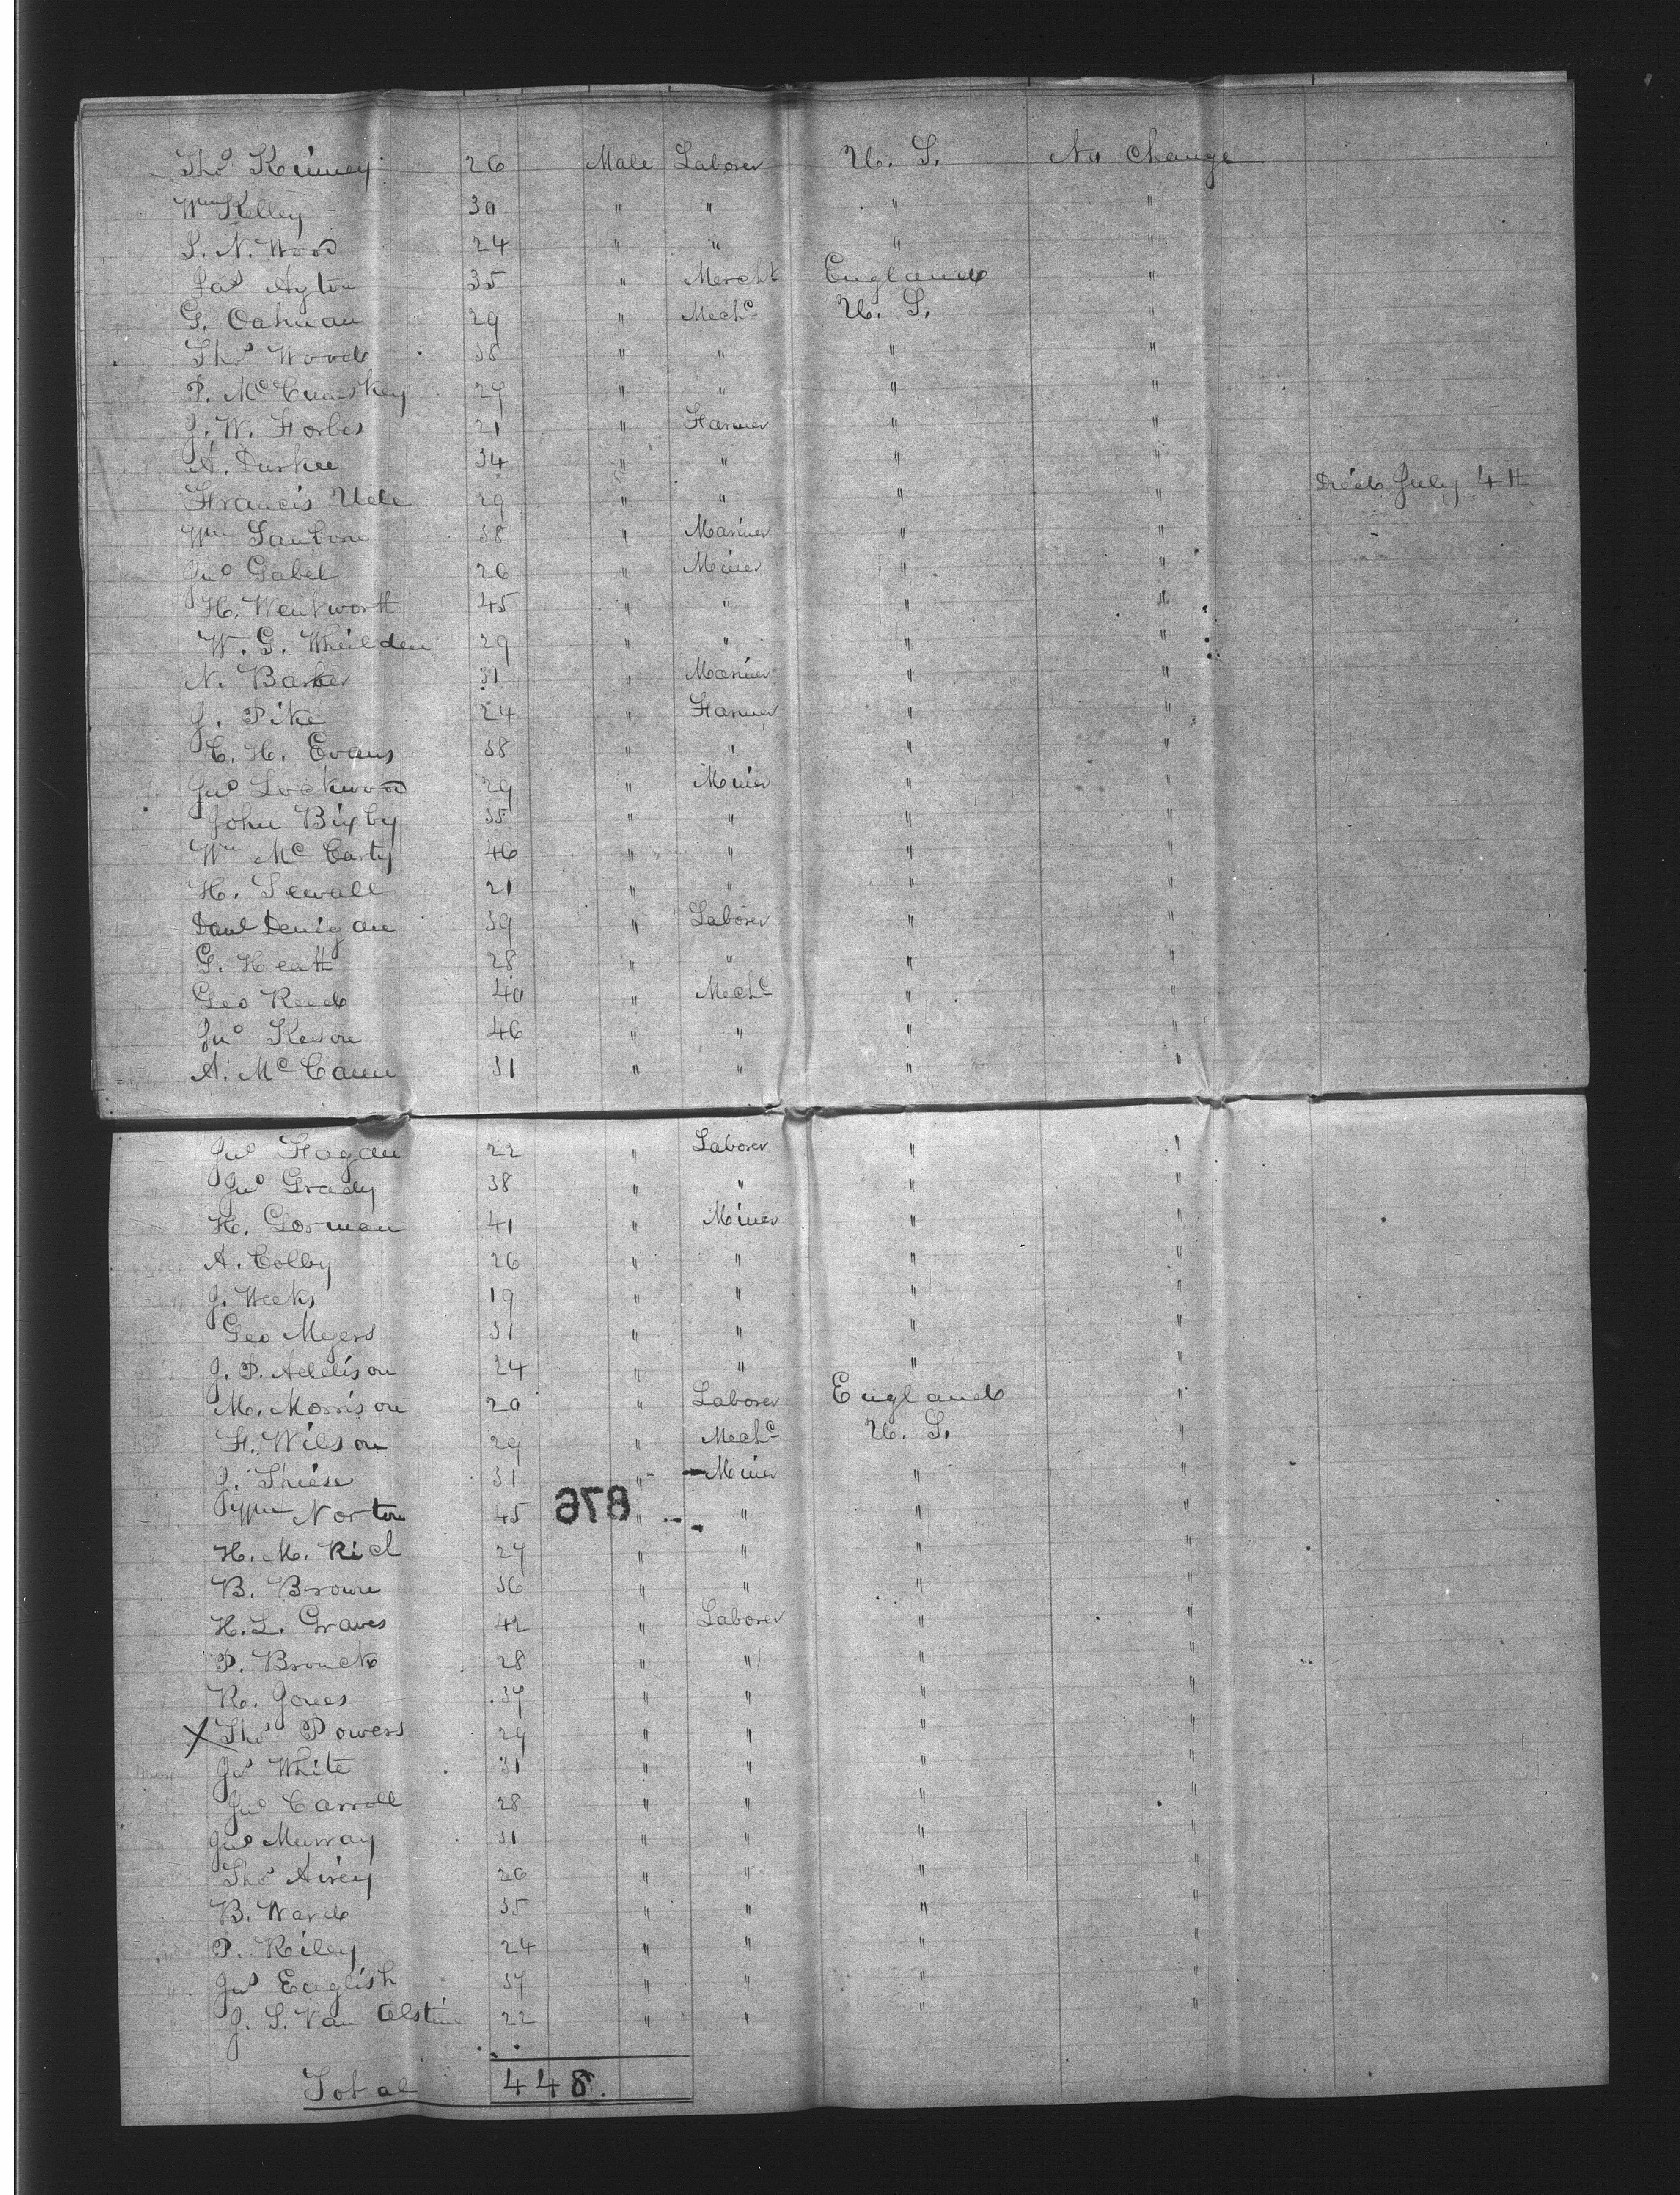 Thos Kenney 26 Male Laborer U. S. No Change
Wm Kelley 30 " " " "
S. N. Wood 24 " " " "
Jas Ayton 35 " Mercht England "
G. Oakman 29 " Mechc U. S. "
Thos Woods 38 " " " "
P. McCumskey 27 " " " "
J. W. Forbes 21 " Farmer " "
A. Durkee 34 " " " "
Francis Udell 29 " " " " Died July 4th
Wm Sanborn 38 " Mariner " "
Jno Gabel 26 " Miner " "
H. Wentworth 45 " " " "
W. G. Wheilden 29 " " " "
N. Barker 31 " Mariner " "
J. Pike 24 " Farmer " "
C. H. Evans 38 " " " "
Jno Lockwood 29 " Miner " "
John Bixby 35 " " " "
Wm McCarty 46 " " " "
H. Sewall 21 " " " "
Danl Denigan 39 " Laborer " "
G. Heath 28 " " " "
Geo Reed 40 " Mechc " "
Jno Keson 46 " " " "
A. McCann 31 " " " "
Jno Fagan 22 " Laborer " "
Jno Grady 38 " " " "
H. Gorman 41 " Miner " "
A. Colby 26 " " " "
J. Weeks 19 " " " "
Geo Meyers 31 " " " "
J. P. Addison 24 " " " "
M. Morrison 20 " Laborer England "
F. Wilson 29 " Mechc U. S. "
J. Thiese 31 " Miner " "
Wm Norton 45 " " " "
876
H. M. Rich 27 " " " "
B. Brown 36 " " " "
H. L. Graves 42 " Laborer " "
P. Bronck 28 " " " "
R. Jones 37 " " " "
X Thos Powers 29 " " " "
Jno White 31 " " " "
Jno Carroll 28 " " " "
Jno Murray 31 " " " "
Thos Airey 26 " " " "
B. Ward 35 " " " "
P. Riley 24 " " " "
Jno English 37 " " " "
J. S. Van Alstine 22 " " " "
Total 448.